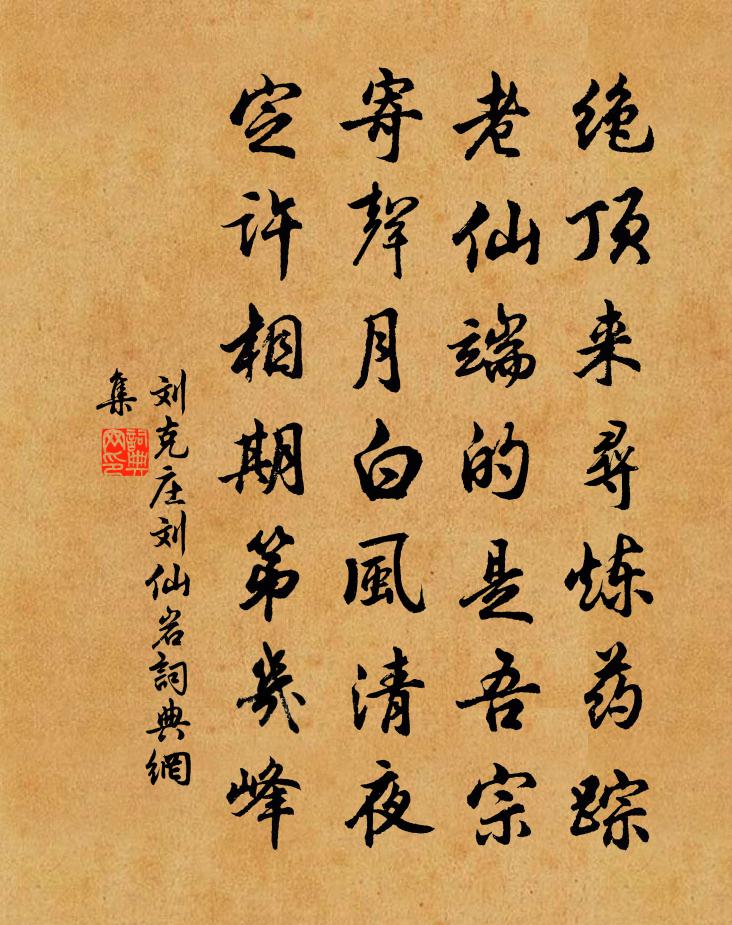 绝顶来尋炼药踪
老仙端的是吾宗
寄聲月白風清夜
定许相期第几峰
刘克庄刘仙岩詞典網
集
詞典
网印